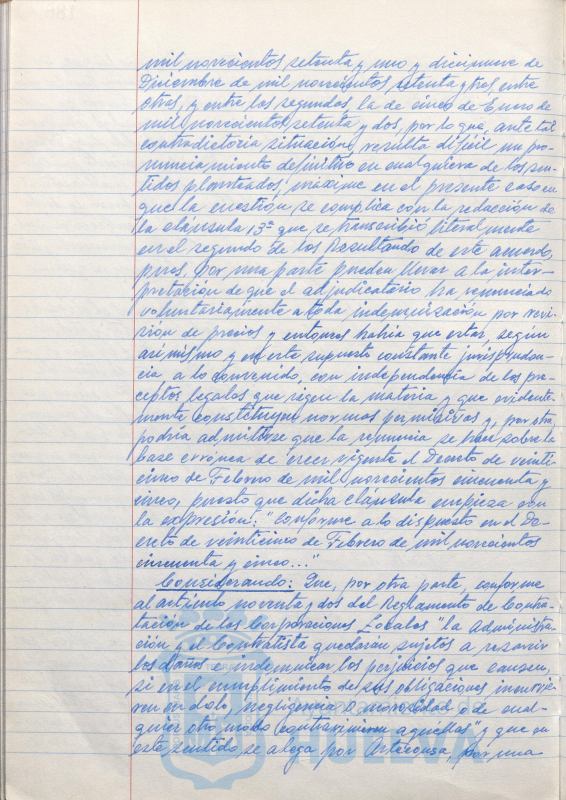 mil novecientos setenta y uno y diecinueve de
Diciembre de mil novecientos setenta y tres entre
otras, y entre los segundos, la de cinco de Enero de
mil novecientos setenta y dos, por lo que, ante tal
contradictoria situación, resulta difícil un pro-
nunciamiento definitivo en cualquiera de los sen-
tidos planteados, máxime en el presente caso en
que la cuestión se complica con la redacción de
la cláusula 13ª que se transcribió literalmente
en el segundo de los Resultandos de este acuerdo,
pues, por una parte pueden llevar a la inter-
pretación de que el adjudicatario ha renunciado
voluntariamente a toda indemnización por revi-
sión de precios y entonces habría que estar, según
asimismo y en este supuesto constante jurispruden-
cia a lo convenido, con independencia de los pre-
ceptos legales que rigen la materia y que evidente-
mente constituyen normas permisivas y, por otra,
podría admitirse que la renuncia se hizo sobre la
base errónea de creer vigente el Decreto de veinti
cinco de Febrero de mil novecientos cincuenta y
cinco, puesto que dicha cláusula empieza con
la expresión: "Conforme a lo dispuesto en el De-
creto de veinticinco de Febrero de mil novecientos
cincuenta y cinco..."
Considerando: Que, por otra parte, conforme
al artículo noventa y dos del Reglamento de Contra-
tación de las Corporaciones Locales "la Administra-
ción y el Contratista quedarán sujetos a resarcir
los daños e indemnizar los perjuicios que causen,
si en el cumplimiento de sus obligaciones incurrie-
ren en dolo, negligencia o morosidad o de cual-
quier otro modo contravinieren aquéllas" y que en
este sentido, se alega por, por una